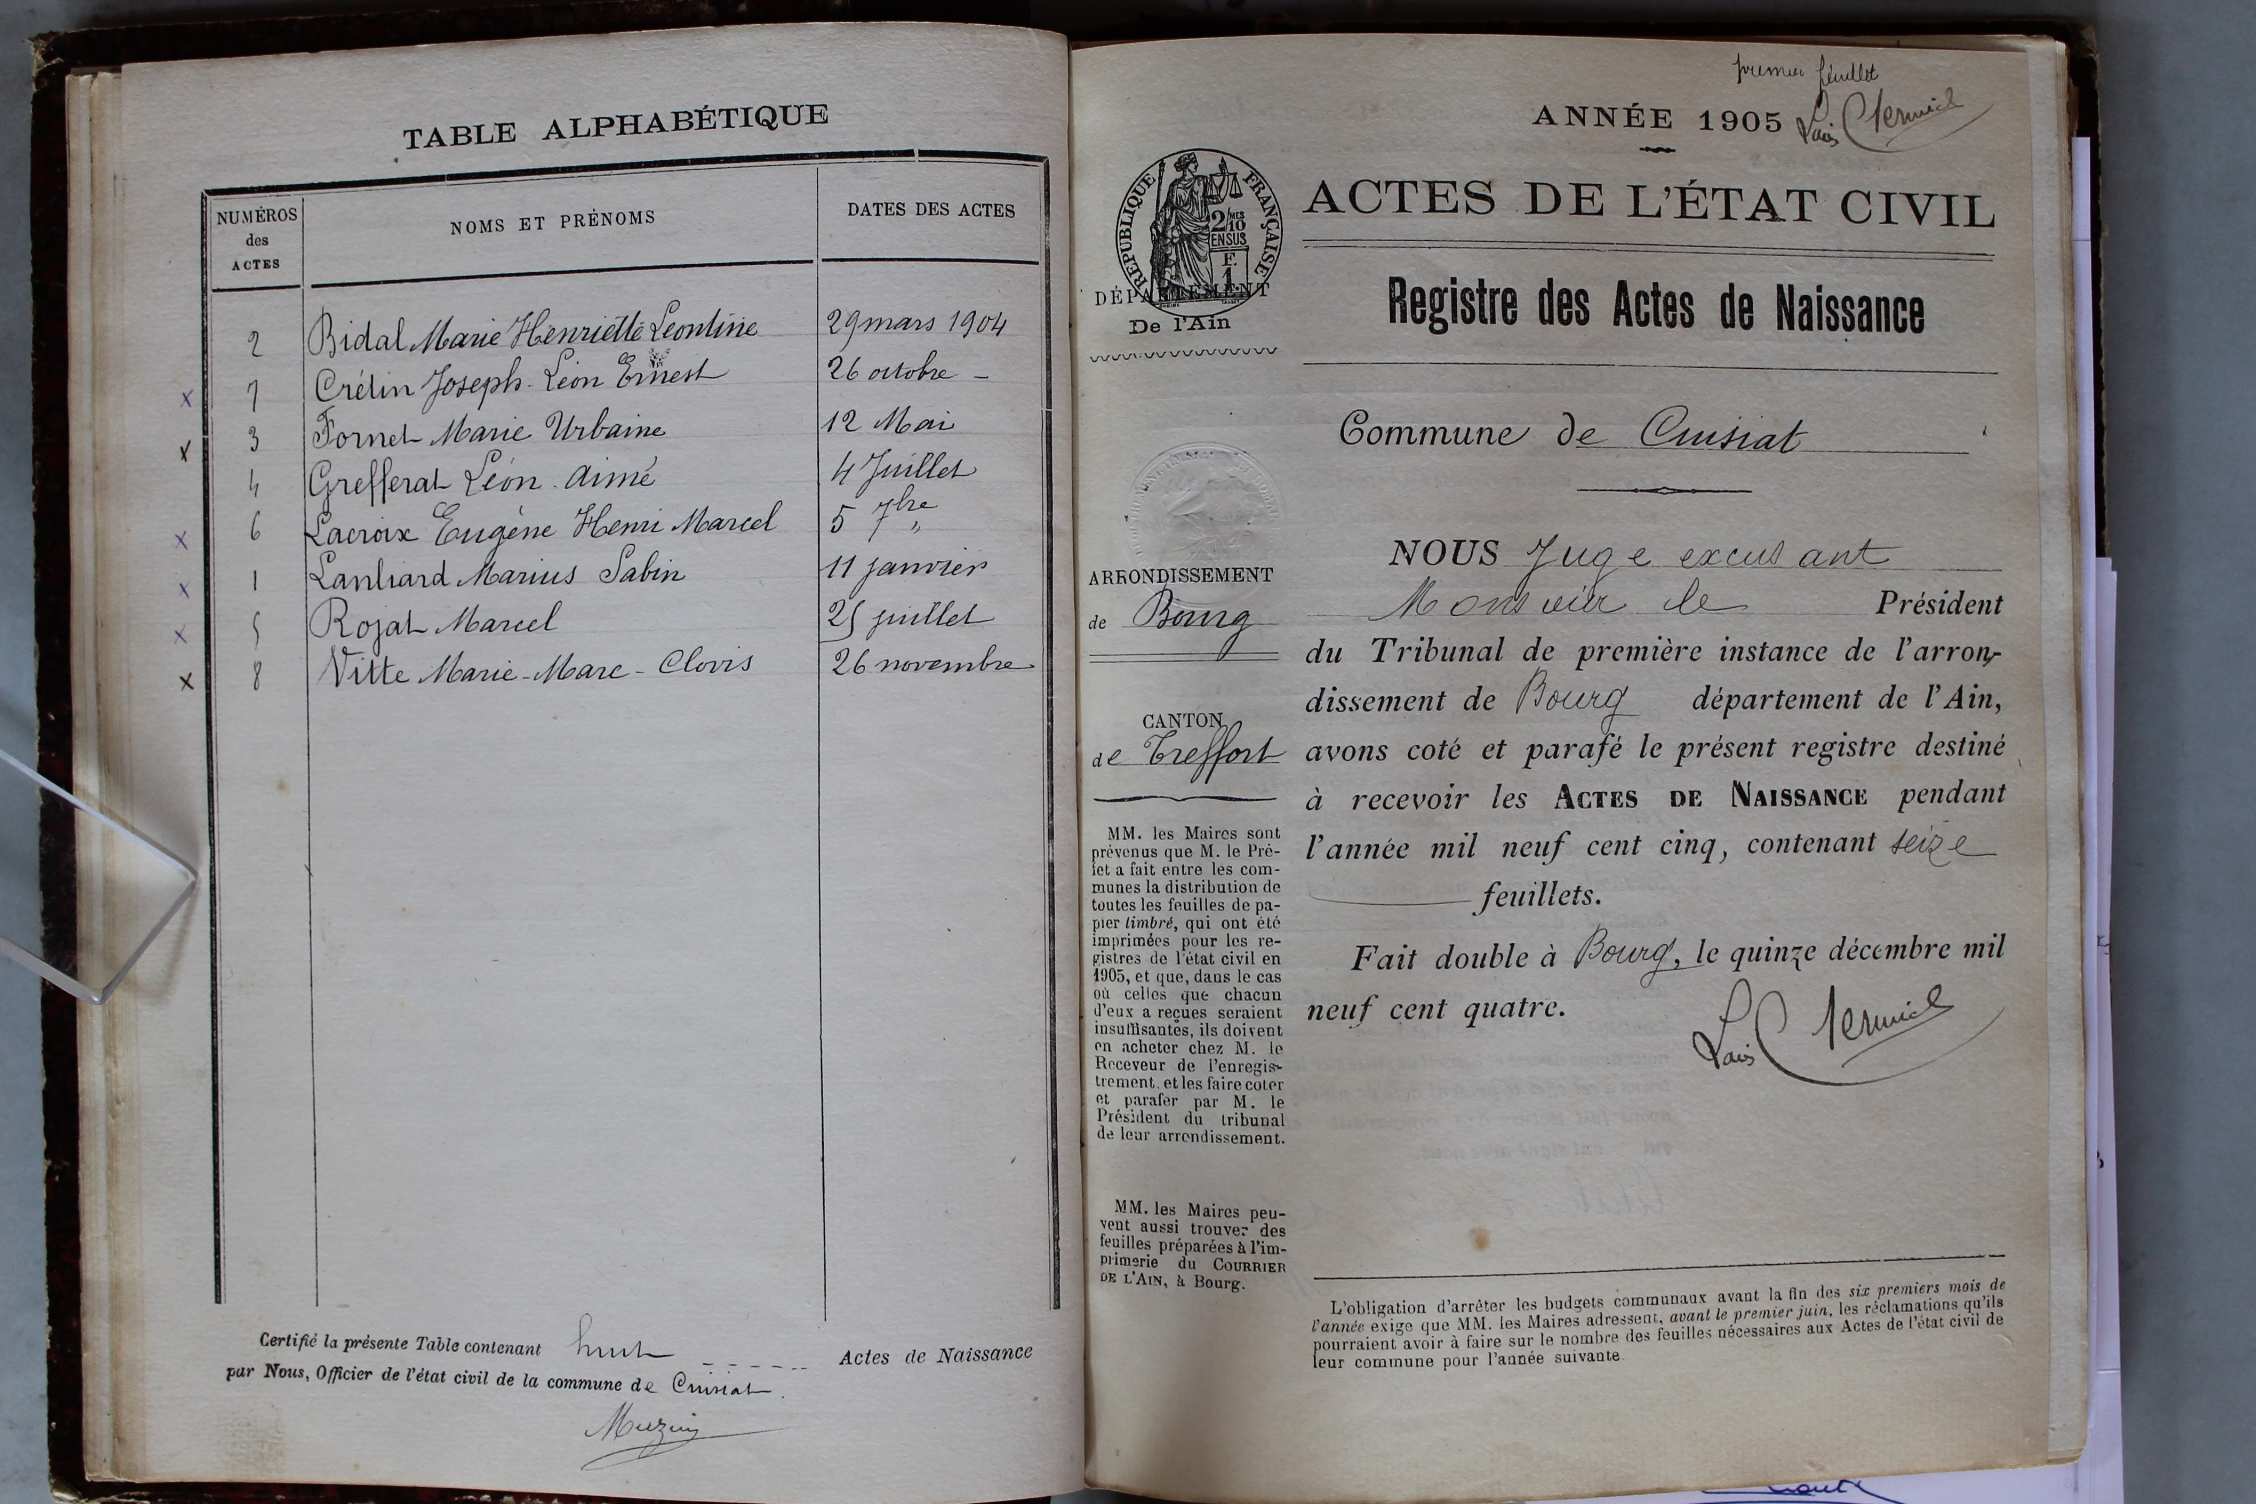 TABLE ALPHABÉTIQUE
NUMÉROS
des
ACTES
NOMS ET PRÉNOMS
DATES DES ACTES
2 Bidal Marie Henriette Leontine 29 mars 1904
x 7 Crétin Joseph-Léon Ernest 26 octobre -
x 3 Fornet Marie Urbaine 12 Mai
4 Grefferat Léon-Aimé 4 Juillet
x 6 Lacroix Eugène Henri Marcel 5 7bre "
x 1 Lanliard Marius Sabin 11 janvier
x 5 Rojat Marcel 25 juillet
x 8 Vitte Marie-Marc-Clovis 26 novembre
Certifié la présente Table contenant huit Actes de Naissance
par Nous, Officier de l'état civil de la commune de Cuisiat.
premier feuillet
ANNÉE 1905
ACTES DE L'ÉTAT CIVIL
RÉPUBLIQUE FRANÇAISE
2/10 MES
EN SUS
F.
1.
DÉPARTEMENT
De l'Ain
Registre des Actes de Naissance
Commune de Cuisiat
ARRONDISSEMENT
de Bourg
CANTON
de Treffort
MM. les Maires sont
prévenus que M. le Pré-
fet a fait entre les com-
munes la distribution de
toutes les feuilles de pa-
pier timbré, qui ont été
imprimées pour les re-
gistres de l'état civil en
1905, et que, dans le cas
où celles que chacun
d'eux a reçues seraient
insuffisantes, ils doivent
en acheter chez M. le
Receveur de l'enregis-
trement, et les faire coter
et parafer par M. le
Président du tribunal
de leur arrondissement.
MM. les Maires peu-
vent aussi trouver des
feuilles préparées à l'im-
primerie du COURRIER
DE L'AIN, à Bourg.
NOUS Juge excusant
Monsieur le Président
du Tribunal de première instance de l'arron-
dissement de Bourg département de l'Ain,
avons coté et parafé le présent registre destiné
à recevoir les ACTES DE NAISSANCE pendant
l'année mil neuf cent cinq, contenant seize
feuillets.
Fait double à Bourg, le quinze décembre mil
neuf cent quatre.
L'obligation d'arrêter les budgets communaux avant la fin des six premiers mois de
l'année exige que MM. les Maires adressent, avant le premier juin, les réclamations qu'ils
pourraient avoir à faire sur le nombre des feuilles nécessaires aux Actes de l'état civil de
leur commune pour l'année suivante.